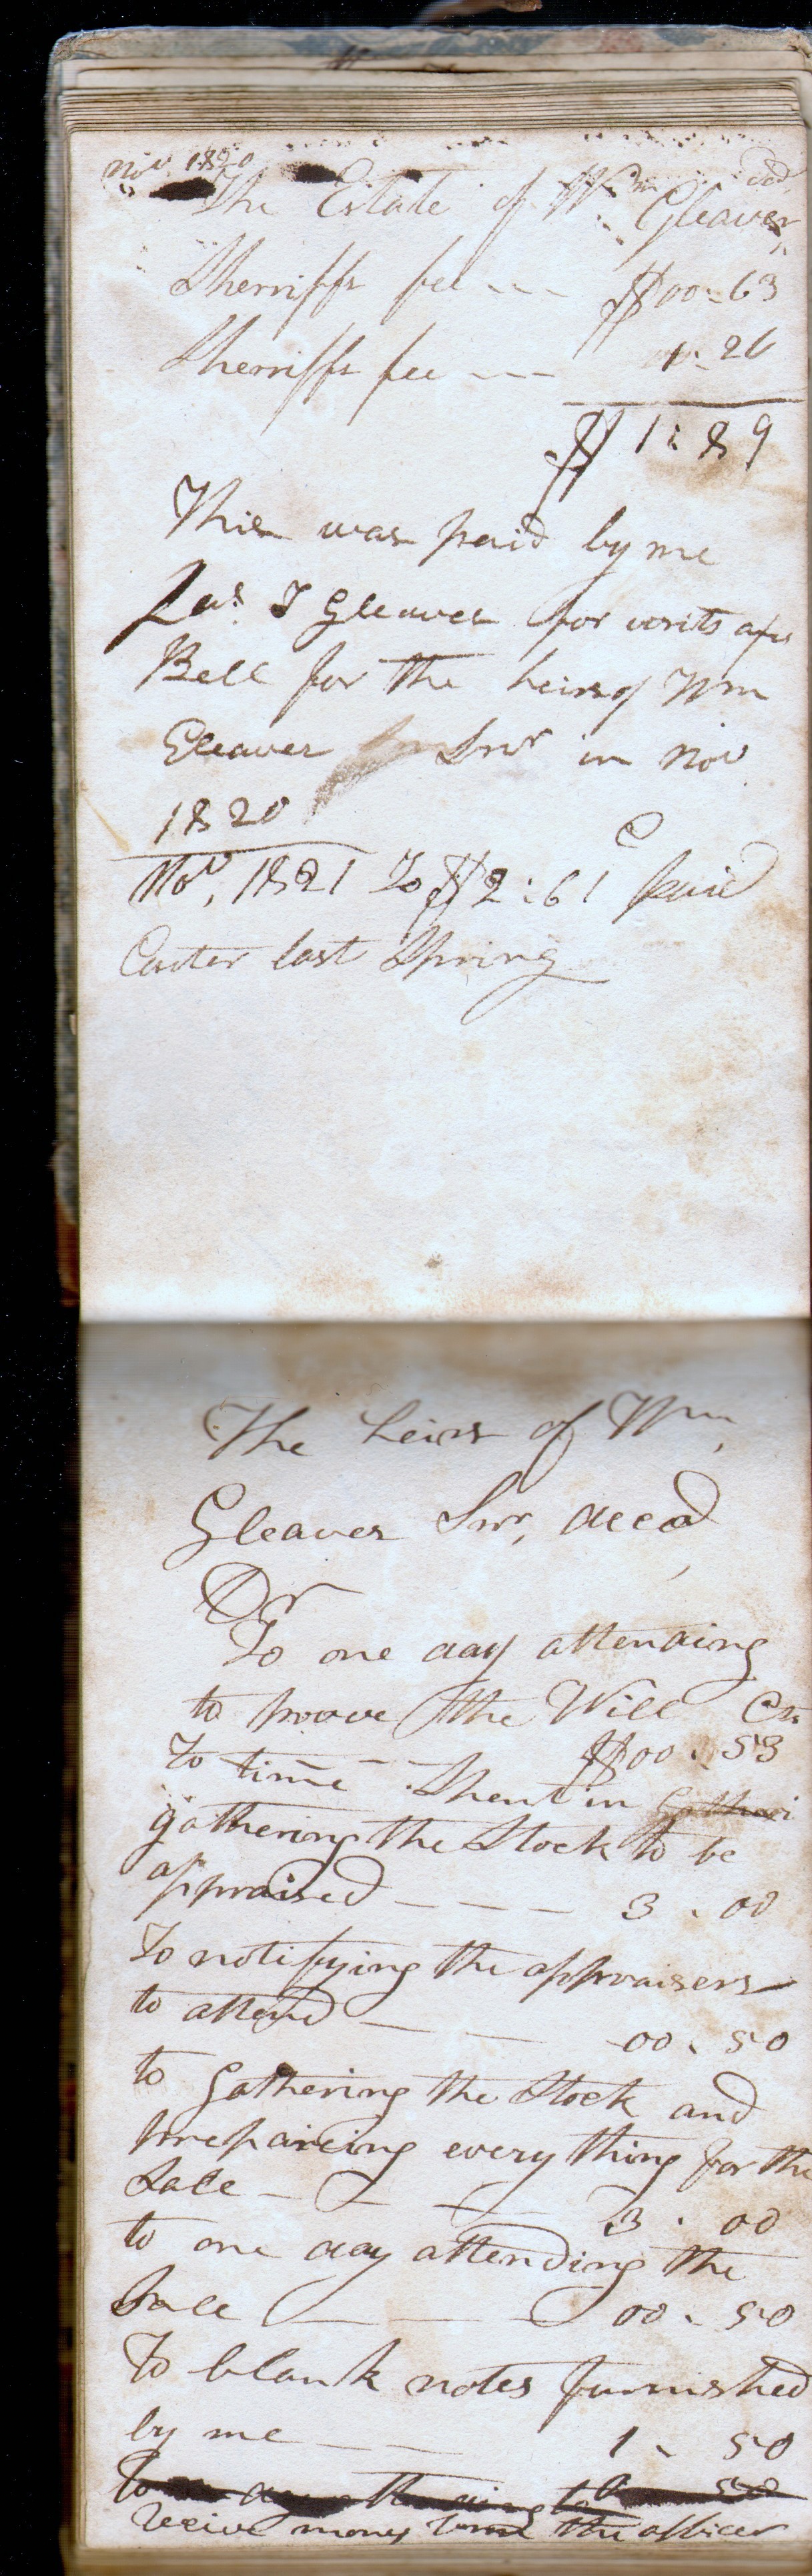 Nov. 1820
decd,
The Estate of Wm. Gleaves
Sherriffs fee --- $00-63
Sherriffs fee --- 1-26
$ 1:89
This was paid by me
Jas. T Gleaves for writs
Bell for the heirs of Wm
Gleaves Snr in Nov
1820
Nov, 1821 To $2:61 c paid
Carter last Spring
The heirs of Wm,
Gleaves Snr, decd
Dr
To one day attending
to proove the Will Cts
$00.53
to time Spent in
gathering the Stock to be
appraised --- 3.00
To notifying the appraisers
to attend -- 00.50
to gathering the Stock and
prepareing every thing for the
Sale --- 3.00
to one day attending the
Sale -- 00-50
To blank notes furnished
by me -- 1-50
receive money from the officer